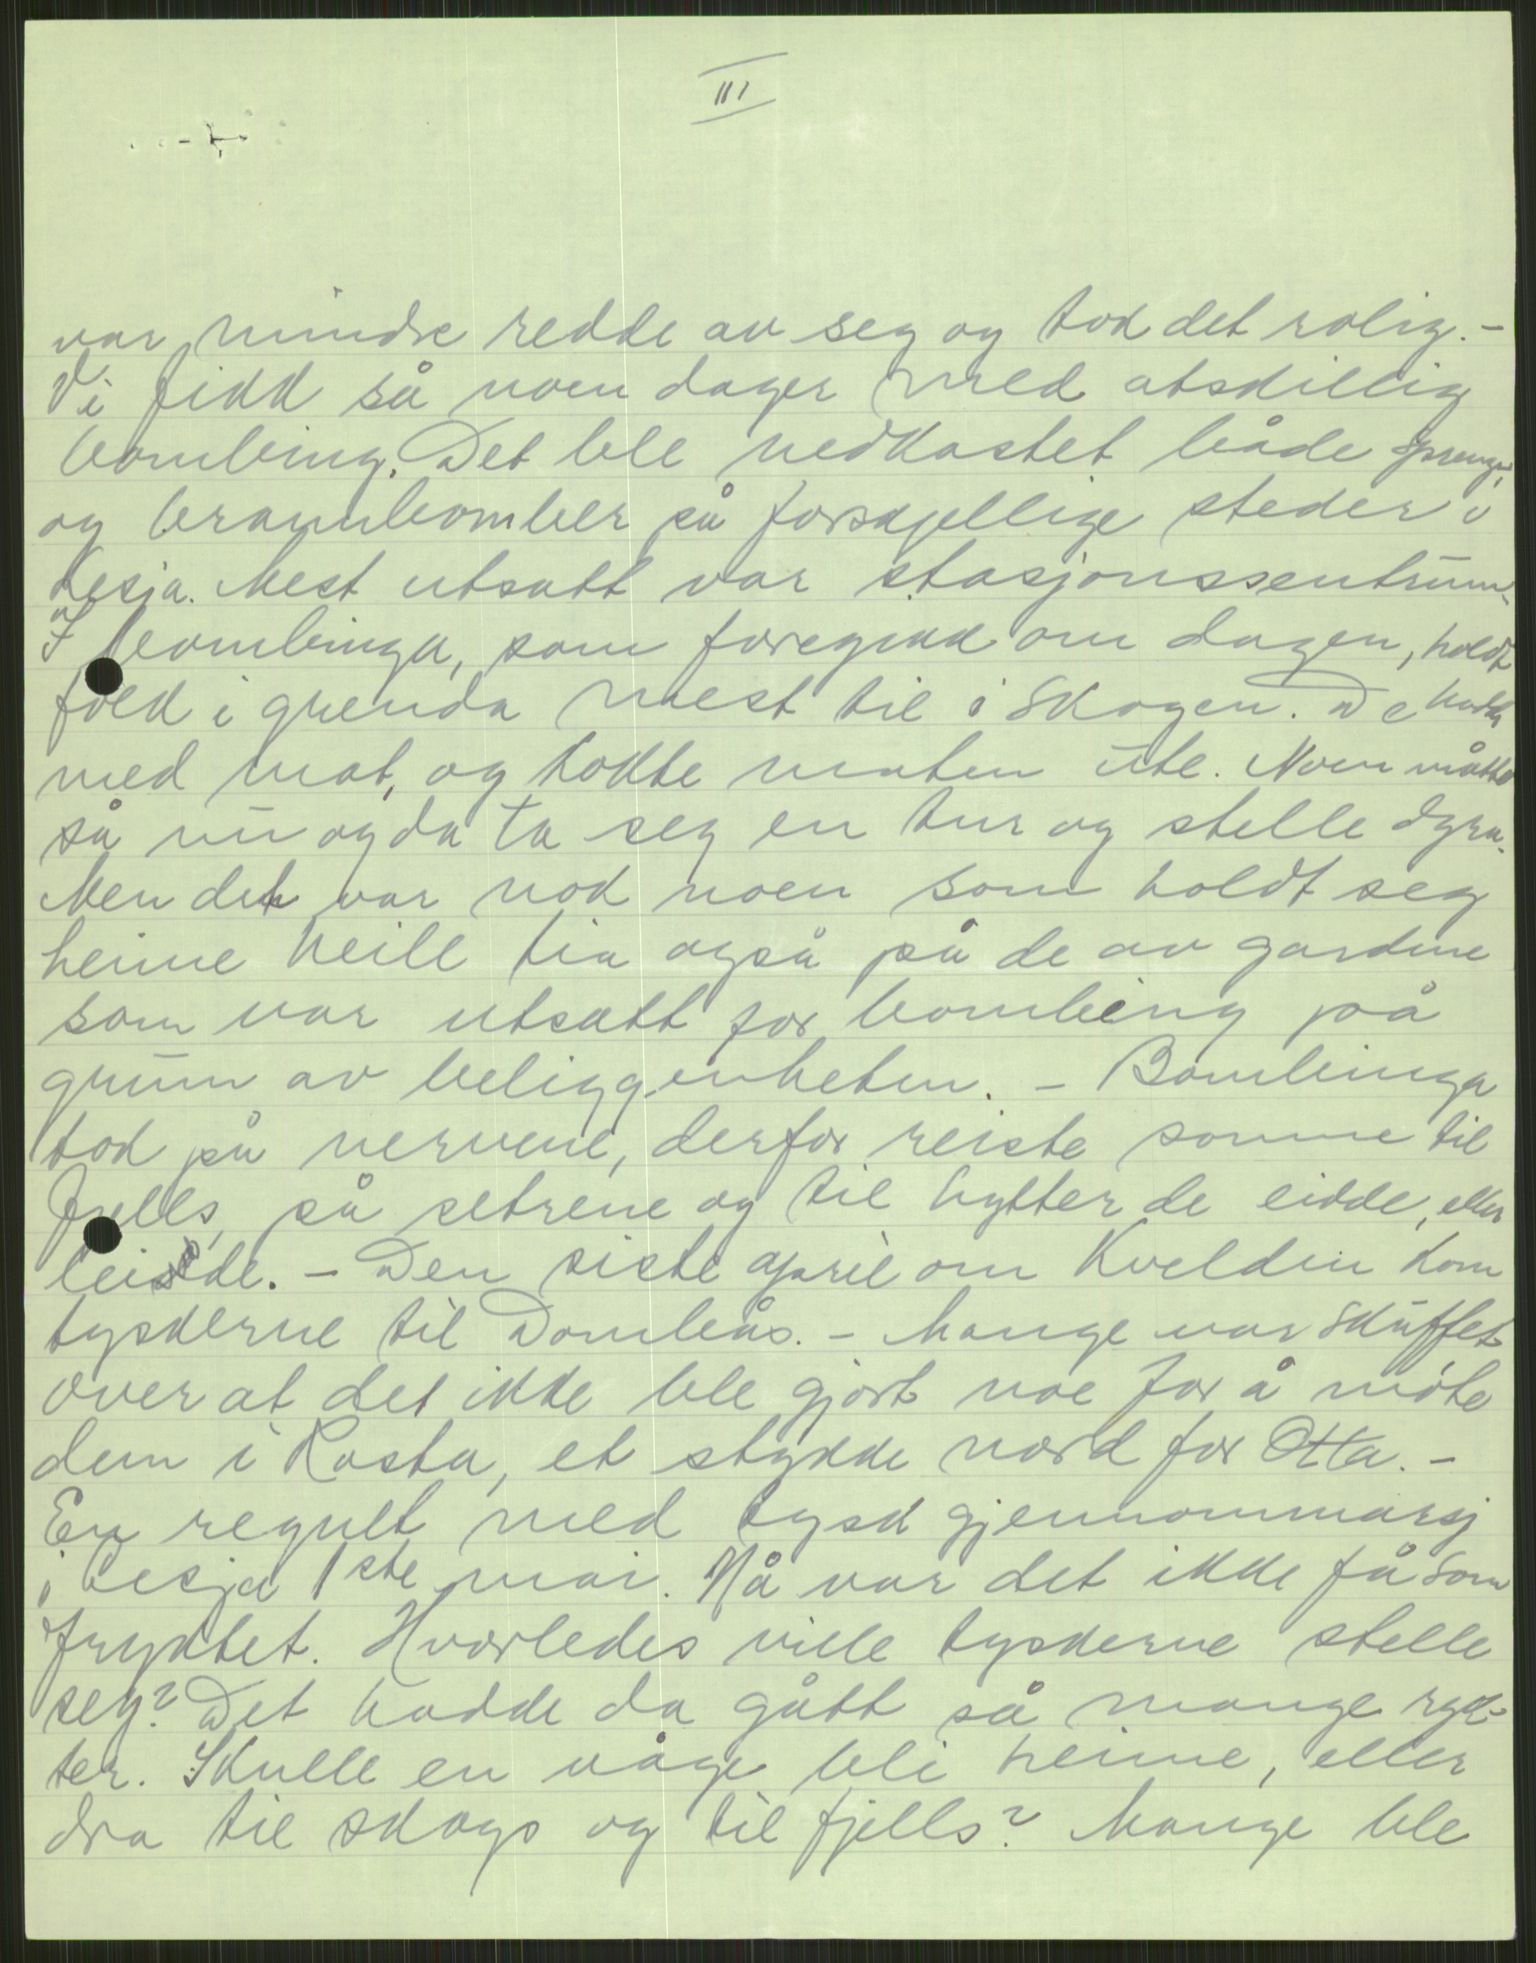 III
var mindre redde av seg og tok det rolig. –
Vi fikk så noen dager med atskillig
bombing. Det ble nedkastet både spreng-
og brannbomber på forskjellige steder i
Lesja. Mest utsatt var stasjonssentrum.
I bombinga, som foregikk om dagen, holdt
folk i grenda mest til i skogen. De hadde
med mat, og kokte maten ute. Noen måtte
så nu og da ta seg en tur og stelle dyra.
Men det var nok noen som holdt seg
heime heile tia også på de av gardene
som var utsatt for bombing på
grunn av beliggenheten. – Bombinga
tok på nervene, derfor reiste somme til
fjells, på setrene og til hytter de eidde, eller
leidde. – Den siste april om kvelden kom
tyskerne til Dombås. – Mange var skuffet
over at det ikke ble gjort noe for å møte
dem i Rosta, et stykke nord for Otta. –
En regnet med tysk gjennommarsj
i Lesja 1ste mai. Nå var det ikke få som
fryktet. Hvorledes ville tyskerne stelle
seg? Det hadde da gått så mange ryk-
ter. Skulle en våge bli heime, eller
dra til skogs og til fjells? Mange ble